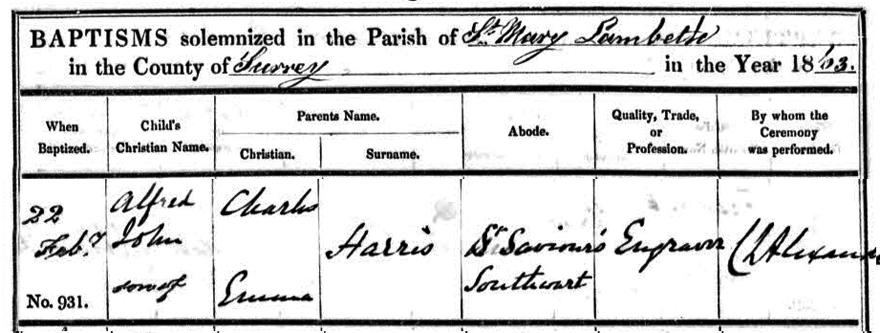 BAPTISMS solemnized in the Parish of St. Mary Lambeth
in the County of Surrey in the Year 1863.
When Baptized.
Child's Christian Name.
Parents Name.
Christian.
Surname.
Abode.
Quality, Trade, or Profession.
By whom the Ceremony was performed.
22
Feby
No. 931.
Alfred
John
son of
Charles
Emma
Harris
St Saviour's
Southwark
Engraver
Alexander